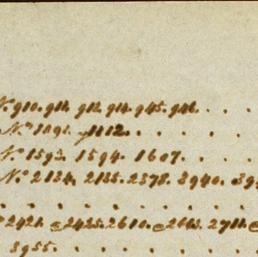 No 910. 911. 912. 914. 945. 946. . . .
No 1091. y 1112. . . . .
No 1593. 1594. 1607. . . . .
No 2134. 2135. 2378. 3940. 39
. . . . . . . . .
2421. e 2425. 2610. e 2663. 2711. e
3955. . . . . . .